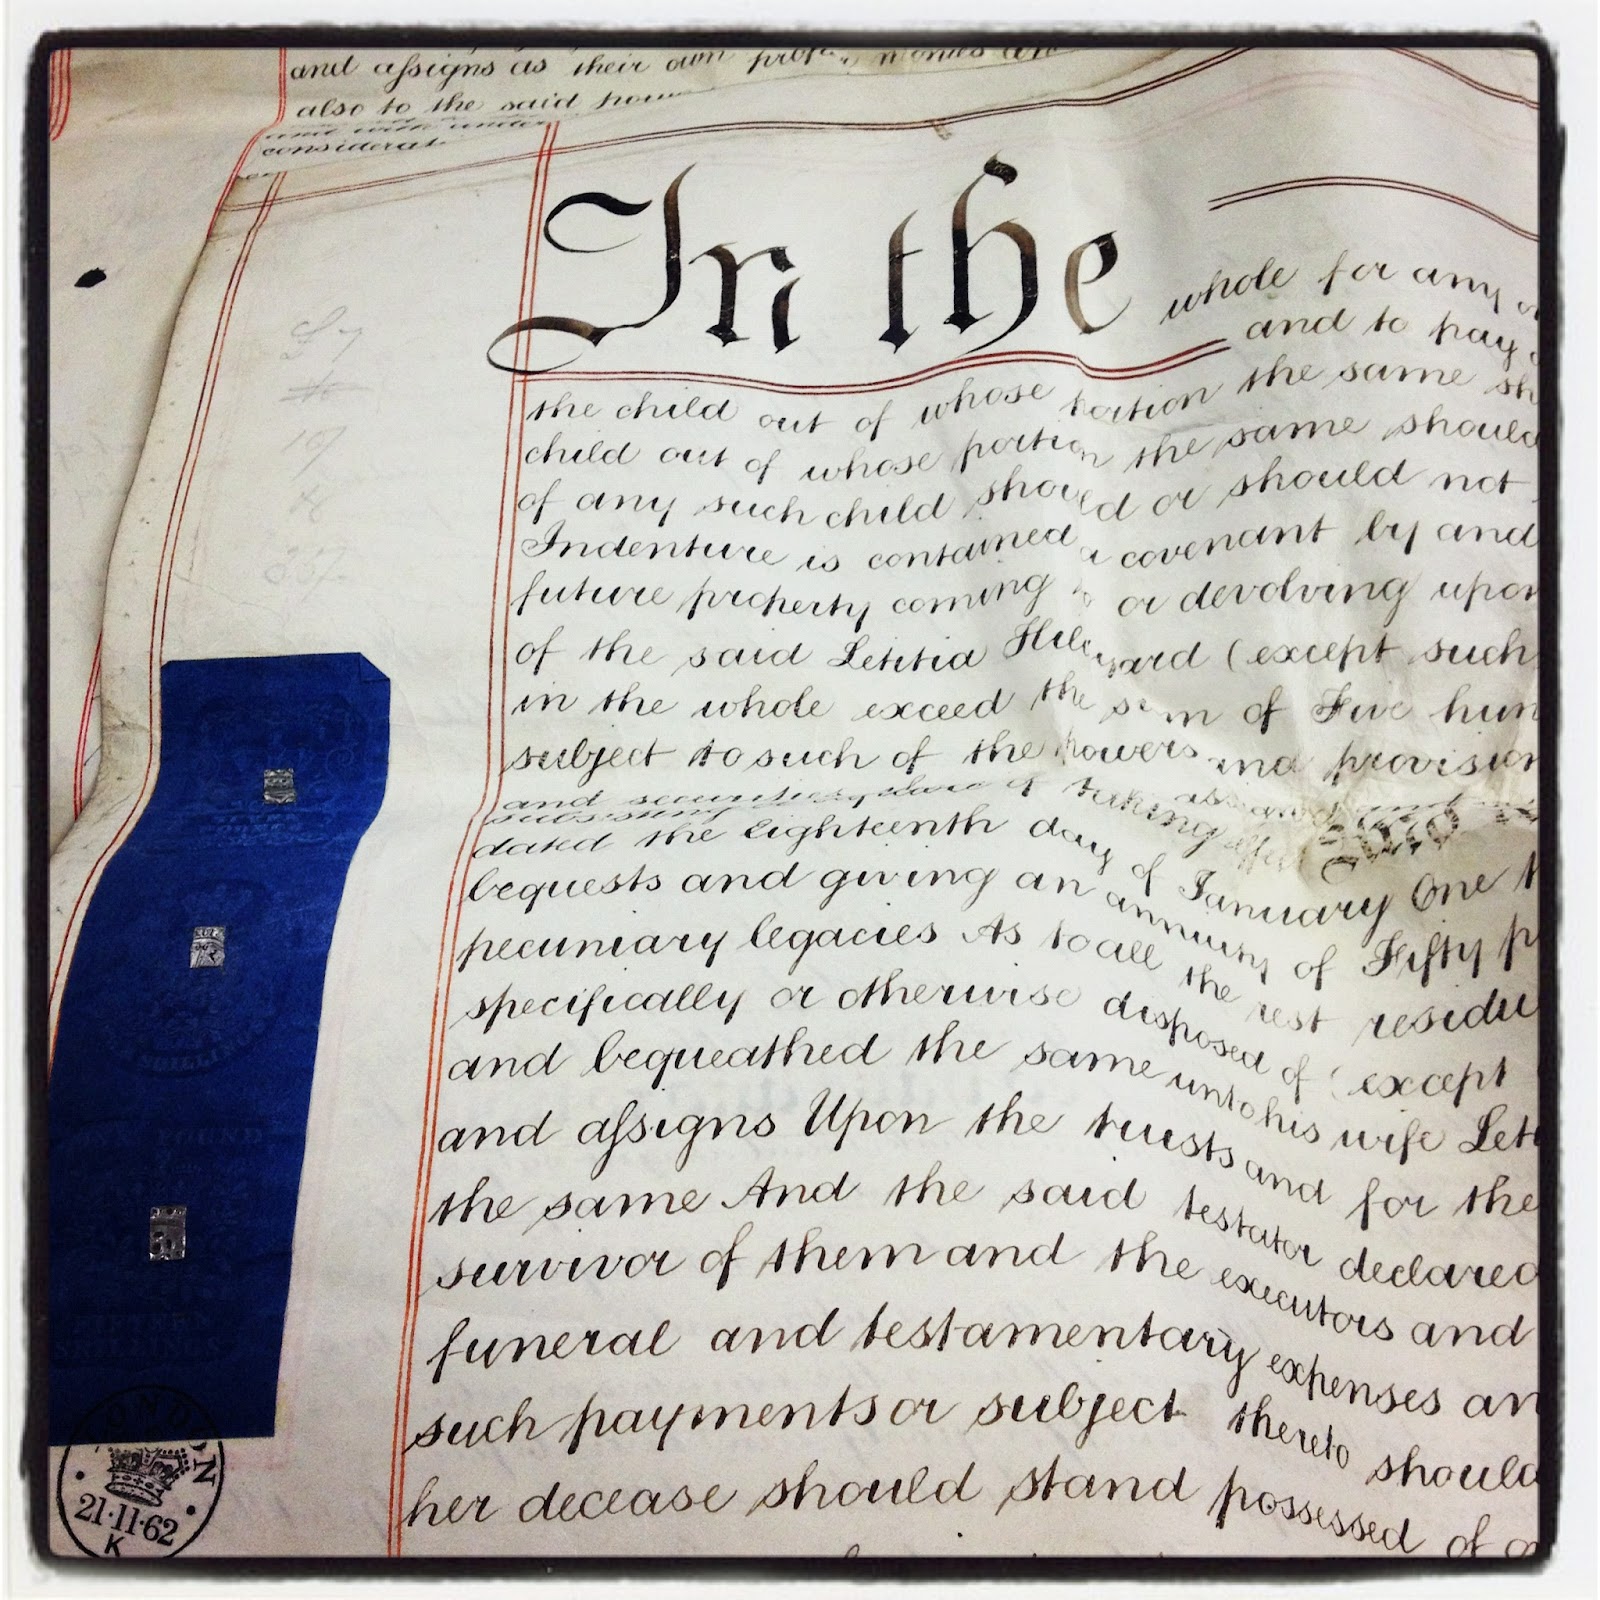 and assigns as their own monies are
also to the said
and with under
considerat
In the whole for any
and to pay
the child out of whose portion the same sh
child out of whose portion the same should
of any such child should or should not
Indenture is contained a covenant by and
future property coming or devolving upon
of the said Letitia (except such
in the whole exceed the sum of Five hun
subject to such of the powers and provision
and securities
subsisting taking effect
dated the Eighteenth day of January One
bequests and giving an annuity of Fifty p
pecuniary legacies As to all the rest residu
specifically or otherwise disposed of (except
and bequeathed the same unto his wife Leti
and assigns Upon the trusts and for the
the same And the said testator declared
survivor of them and the executors and
funeral and testamentary expenses an
such payments or subject thereto should
her decease should stand possessed of
ONE POUND
FIFTEEN
SHILLINGS
LONDON
21·11·62
K